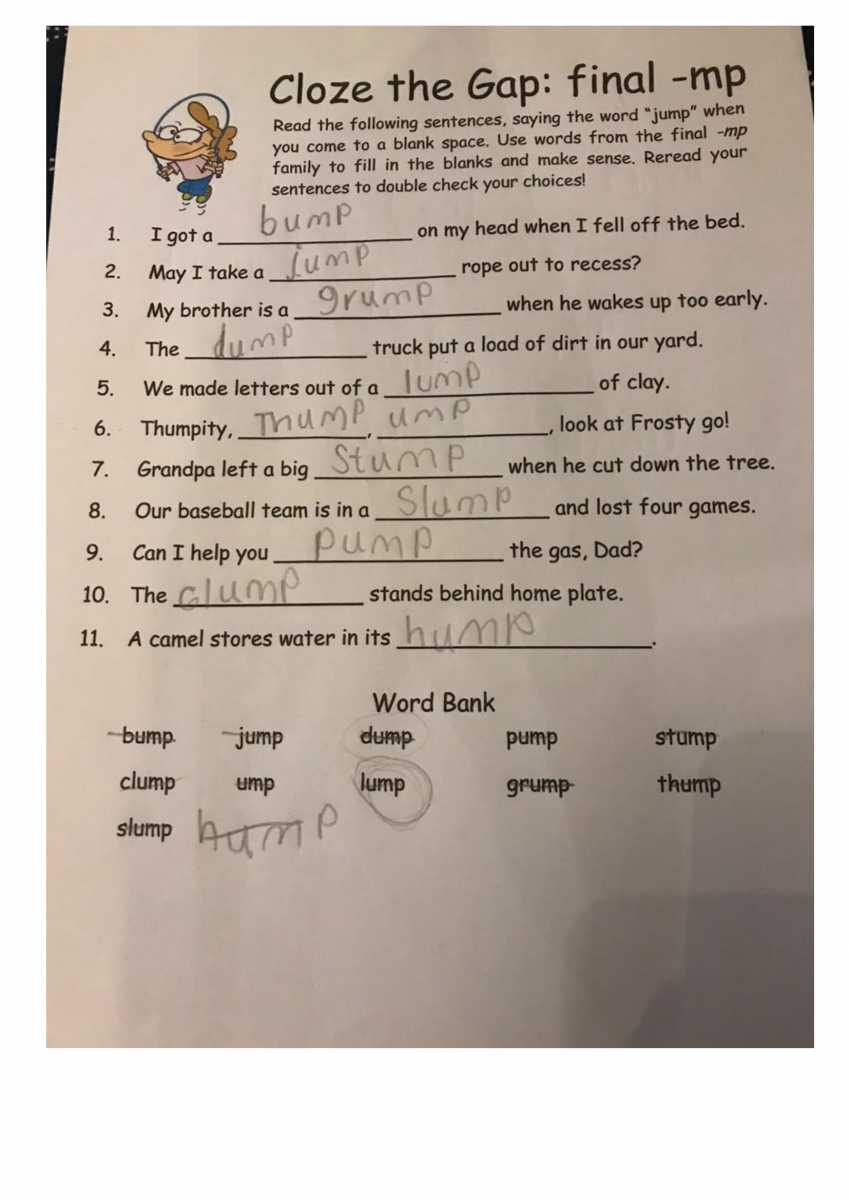 Cloze the Gap: final -mp
Read the following sentences, saying the word "jump" when
you come to a blank space. Use words from the final -mp
family to fill in the blanks and make sense. Reread your
sentences to double check your choices!
1. I got a bump on my head when I fell off the bed.
2. May I take a jump rope out to recess?
3. My brother is a grump when he wakes up too early.
4. The dump truck put a load of dirt in our yard.
5. We made letters out of a lump of clay.
6. Thumpity, Thump, ump, look at Frosty go!
7. Grandpa left a big Stump when he cut down the tree.
8. Our baseball team is in a Slump and lost four games.
9. Can I help you pump the gas, Dad?
10. The clump stands behind home plate.
11. A camel stores water in its hump.
Word Bank
bump jump dump pump stump
clump ump lump grump thump
slump hump